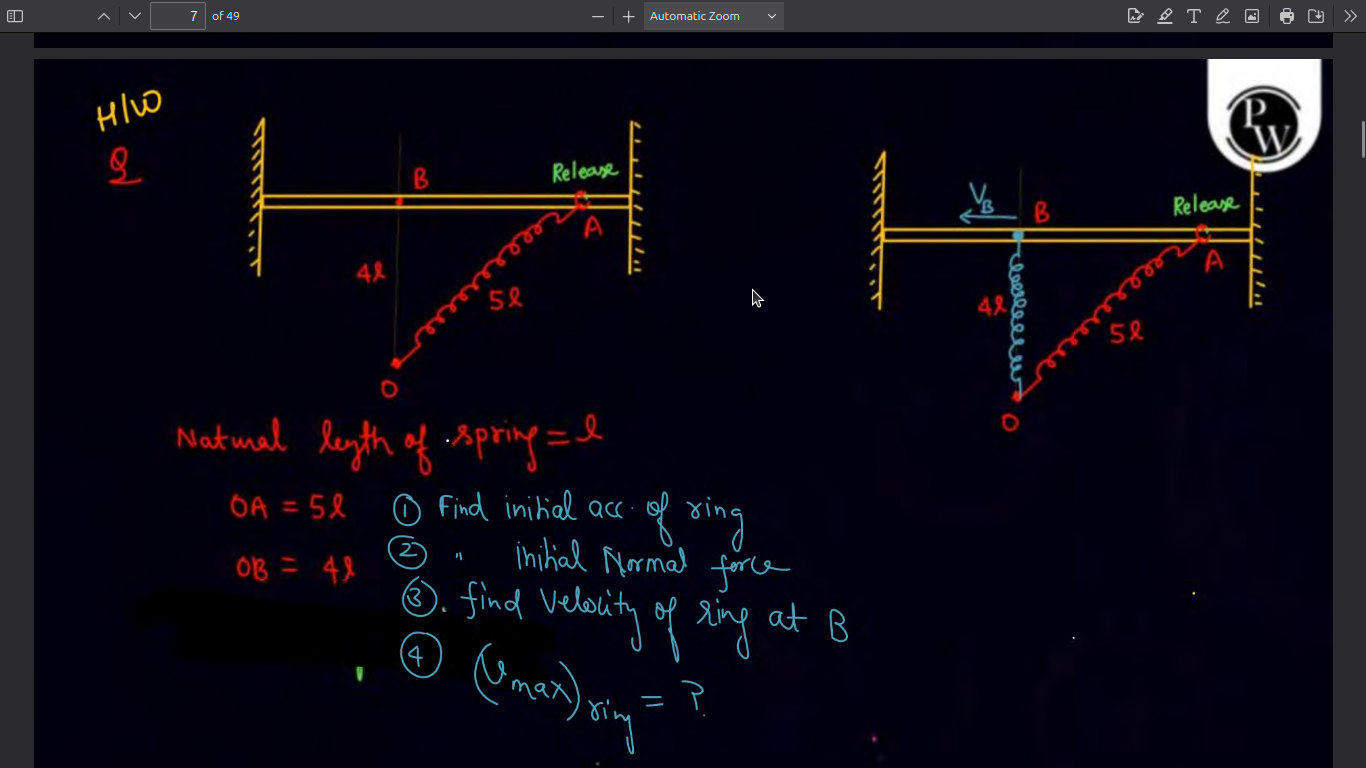 7 of 49
Automatic Zoom
H/W
Q
B
Release
A
4l
5l
O
P
W
V_B
B
Release
A
4l
5l
O
Natural length of spring = l
OA = 5l
OB = 4l
① Find initial acc. of ring
② " initial Normal force
③. find Velocity of ring at B
④ (Vmax)ring = ?